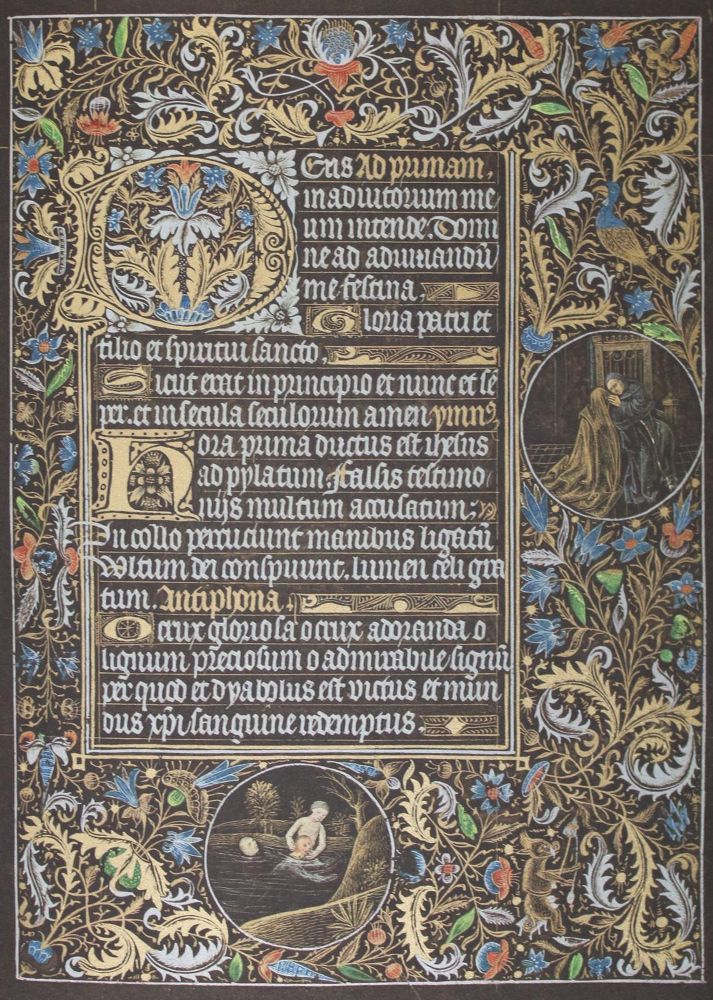 Deus Ad primam.
in adiutorium me
um intende. Domi
ne ad adiuuandū
me festina.
Gloria patri et
filio et spiritui sancto.
Sicut erat in principio et nunc et sē
per. et in secula seculorum amen ymnꝰ
Hora prima ductus est ihesus
ad pylatum. ffalsis testimo
niis multum accusatum:
In collo percuciunt manibus ligatū
Vltum dei conspuunt. lumen celi gra
tum. Antiphona.
O crux gloriosa o crux adoranda o
lignum preciosum o admirabile signū
per quod et dyabolus est victus et mun
dus xp̄i sanguine redemptus.